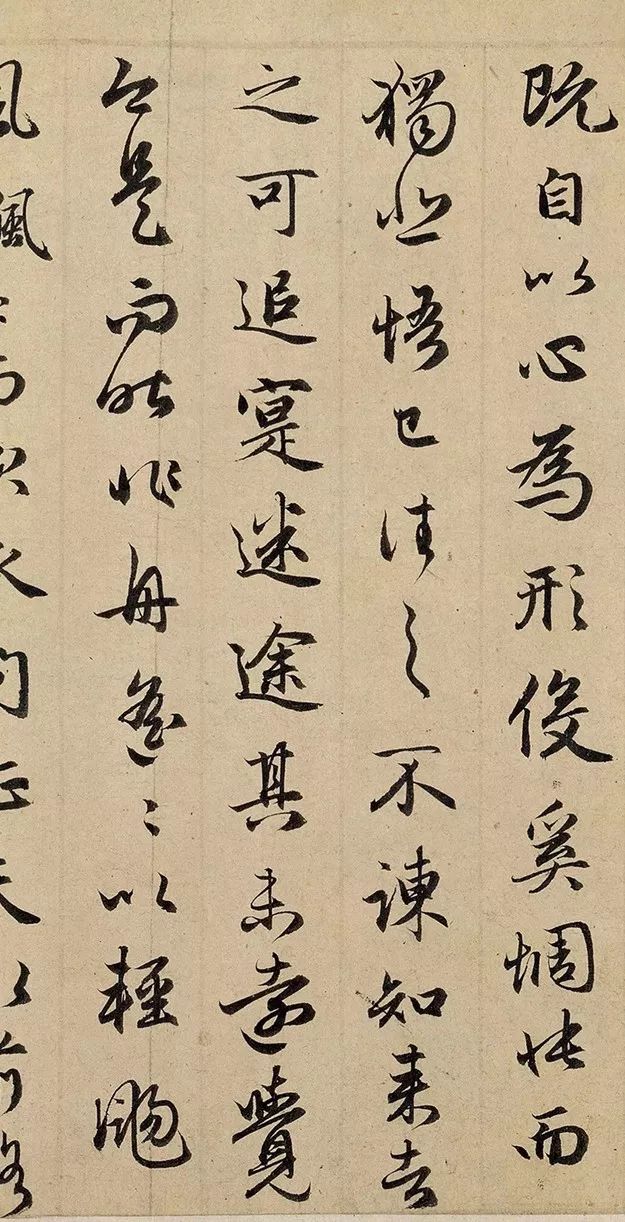 既自以心為形役奚惆悵而
獨悲悟已往之不諫知来者
之可追寔迷途其未遠覺
今是而昨非舟遙〻以輕颺
風飄〻而吹衣問征夫以前路